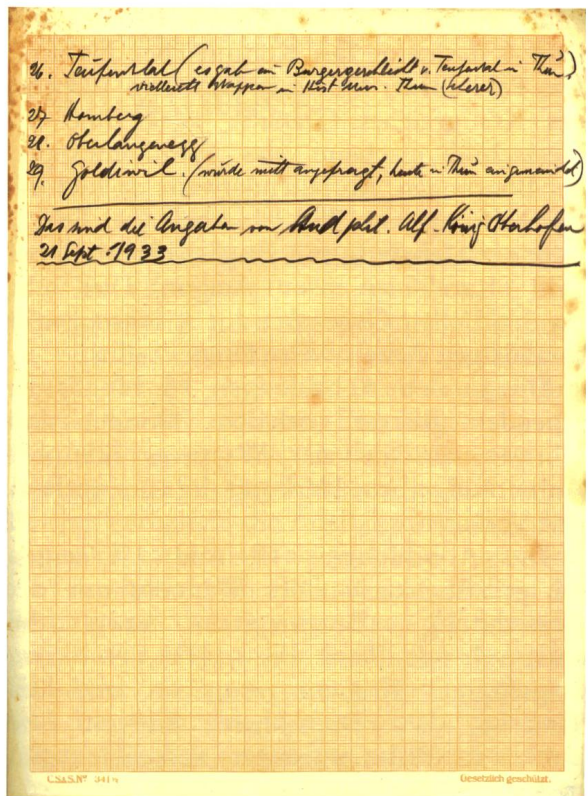 26. Teufental (es gab ein Burgergeschlecht v. Teufental in Thun,)
vielleicht Wappen in Hist Mus. Thun (Kerer)
27 Homberg
28. Oberlangenegg
29. Goldiwil. (wurde nicht angefragt, heute in Thun eingemeindet)
Das sind die Angaben von stud phil. Alf. König Oberhofen
21 Sept. 1933
C.S.&S.Nº 341
Gesetzlich geschützt.